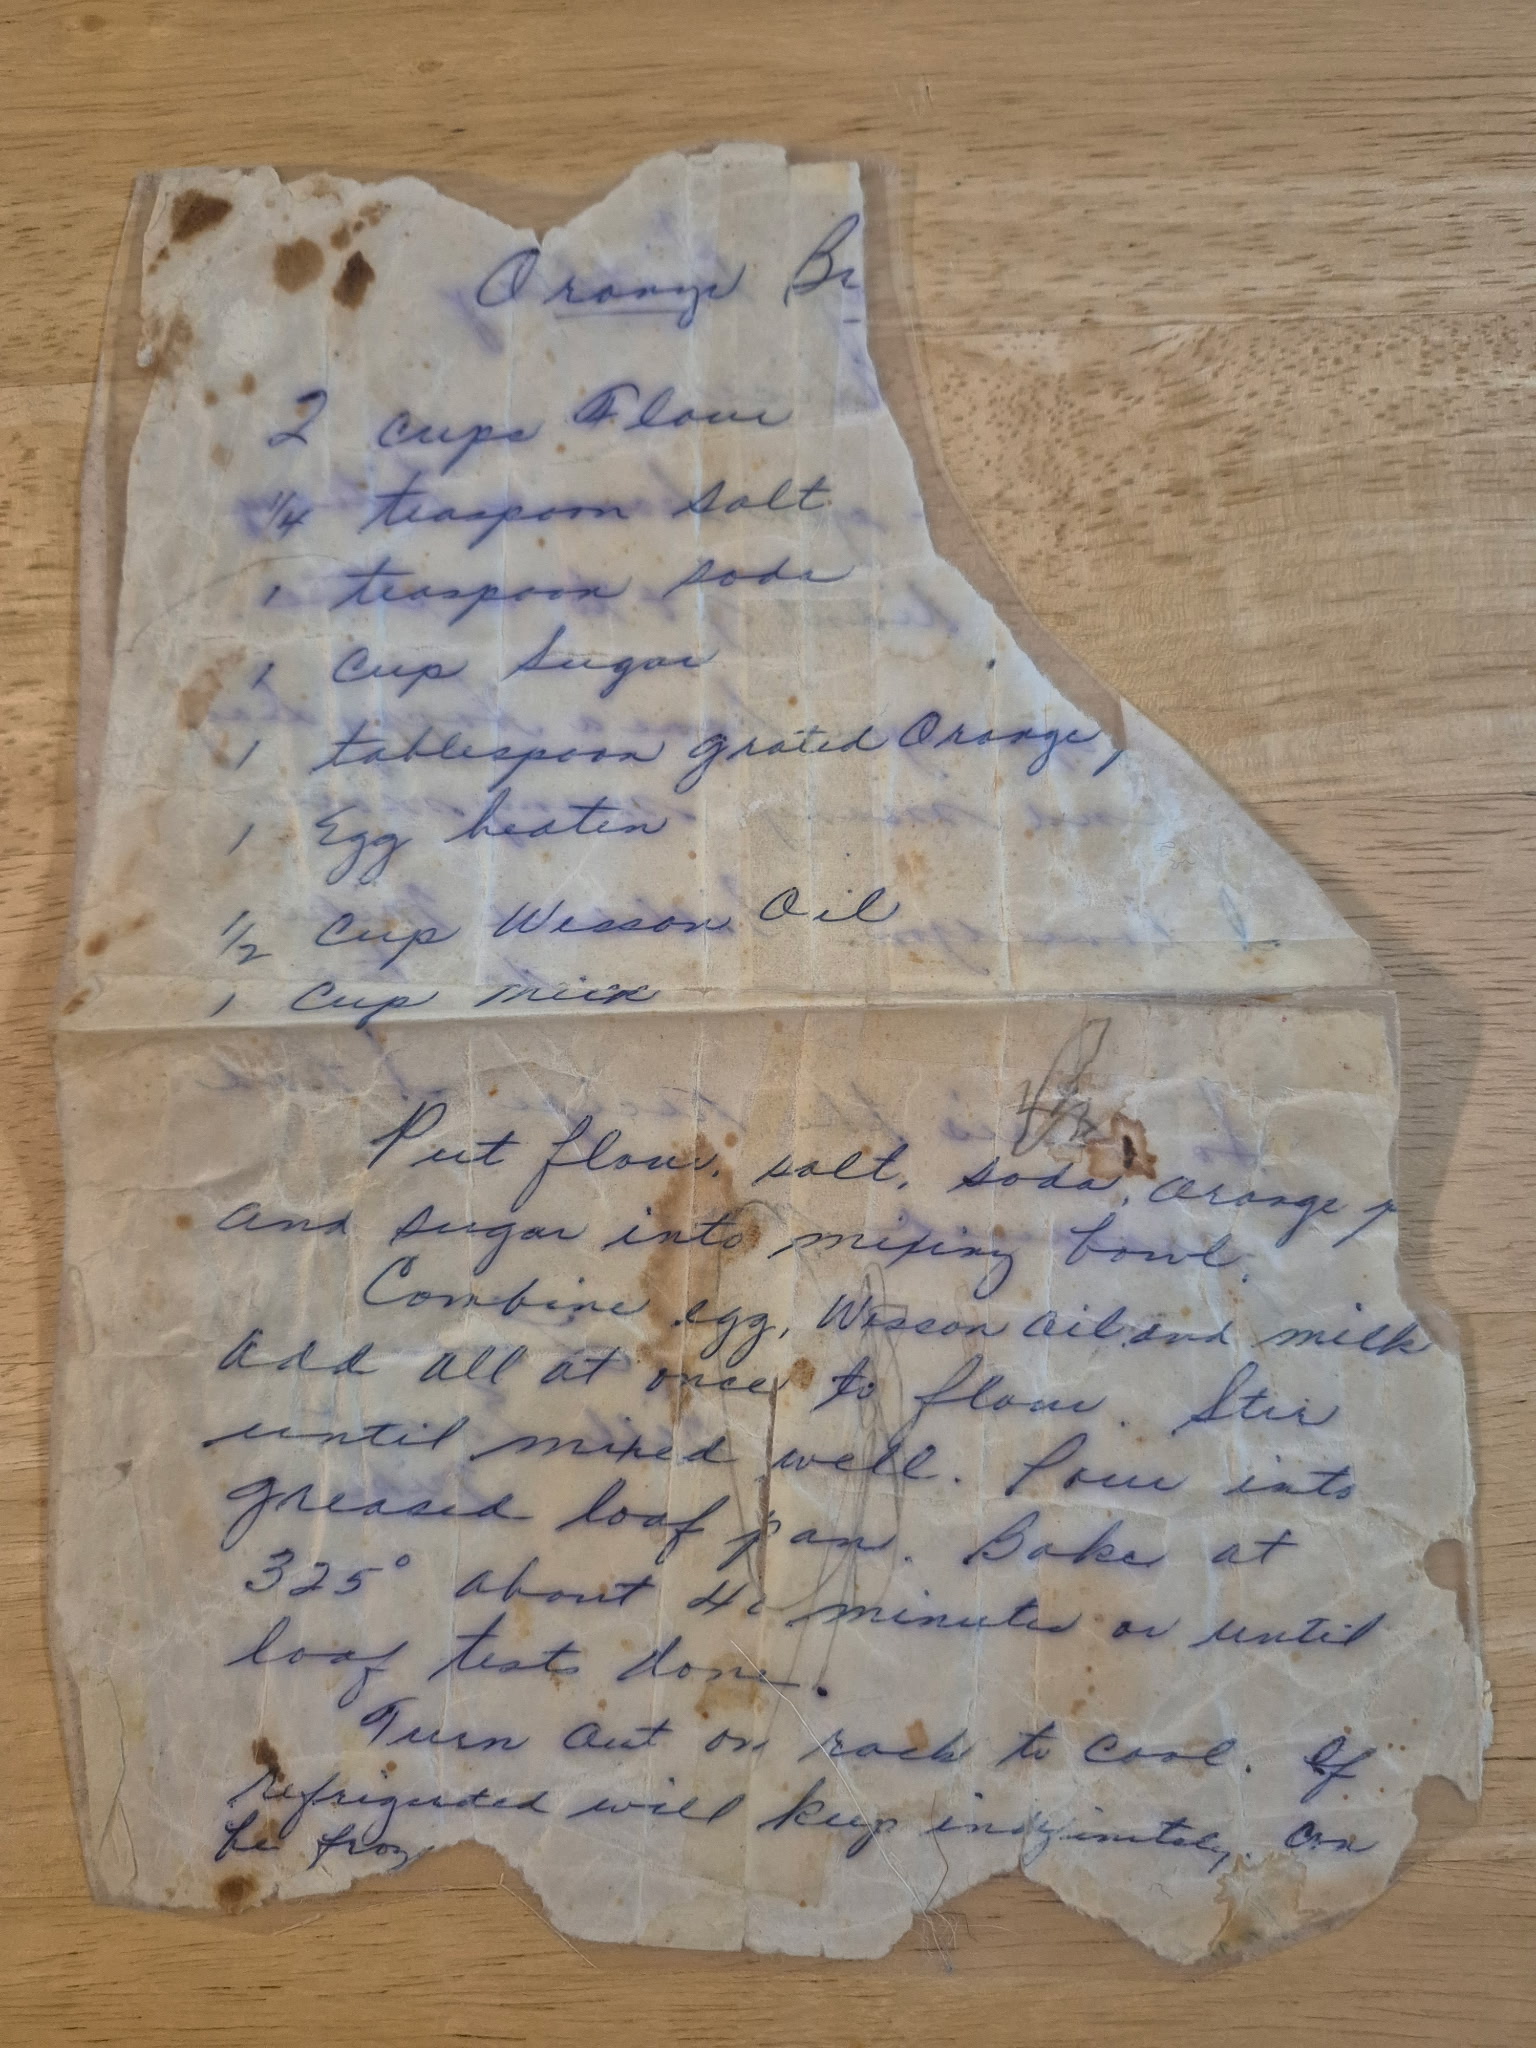 Orange Br
2 cups Flour
1/4 teaspoon salt
1 teaspoon soda
1 cup Sugar
1 tablespoon grated Orange
1 Egg beaten
1/2 cup Wesson Oil
1 cup milk
Put flour, salt, soda, orange p
and sugar into mixing bowl.
Combine egg, Wesson oil and milk
add all at once to flour. Stir
until mixed well. Pour into
greased loaf pan. Bake at
325° about minutes or until
loaf tests done.
Turn out on rack to cool. If
refrigerated will keep indefinitely. Can
be froz